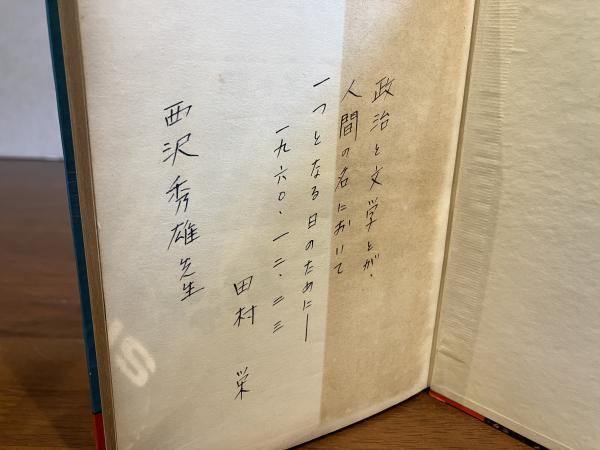 政治と文学とが、
人間の名において
一つとなる日のために—
一九六〇、一二、二三
田村 栄
西沢秀雄先生